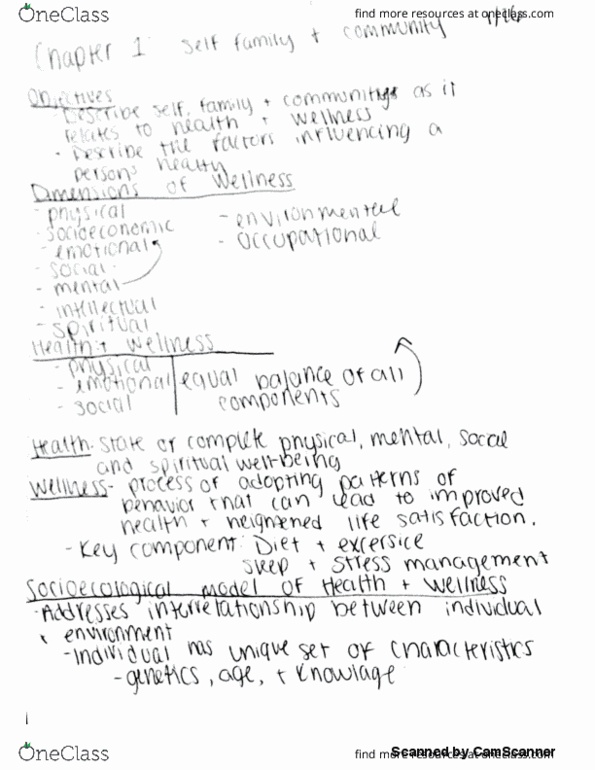 OneClass
find more resources at oneclass.com
Chapter 1 self family + community 1/16
Objectives
- Describe self, family + community as it
relates to health + wellness
- Describe the factors influencing a
persons health
Dimensions of Wellness
- physical
- socioeconomic
- emotional
- social
- mental
- intellectual
- spiritual
- environmental
- occupational
Health + wellness
- physical
- emotional
- social
equal balance of all
components
Health- State of complete physical, mental, social
and spiritual well-being
Wellness- process of adopting patterns of
behavior that can lead to improved
health + heigntened life satisfaction.
- Key component: Diet + excersice
sleep + stress management
Socioecological model of Health + Wellness
- Addresses interrelationship between individual
+ environment
- Individual has unique set of characteristics
- genetics, age, + knowlage
OneClass
find more resources at oneclass.com
Scanned by CamScanner